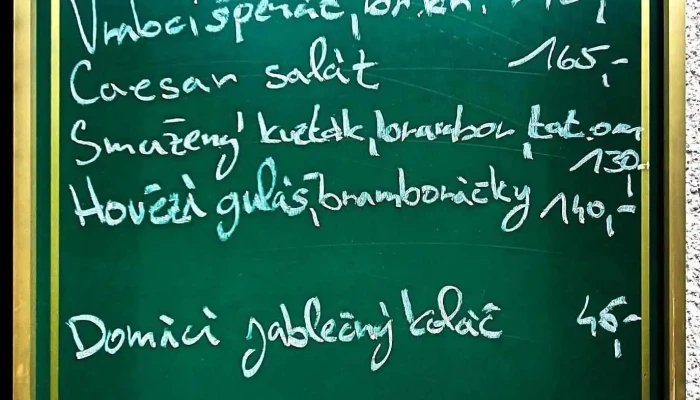 Vrabci špenát, br.kn.
Caesar salát 165,-
Smažený květák, brambor, tat.om
130,-
Hovězí guláš, bramboráčky 140,-
Domácí jablečný koláč 45,-